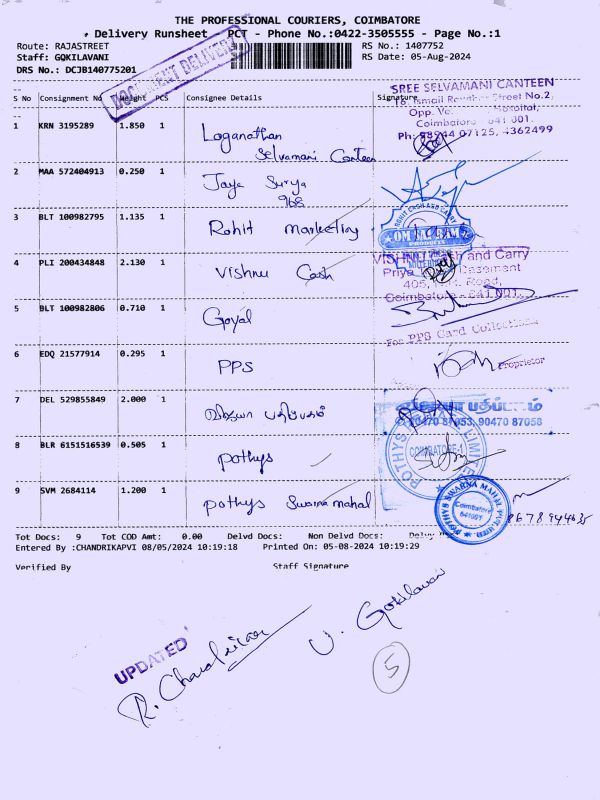 THE PROFESSIONAL COURIERS, COIMBATORE
Delivery Runsheet PCT - Phone No.:0422-3505555 - Page No.:1
Route: RAJASTREET
RS No.: 1407752
Staff: GOKILAVANI
RS Date: 05-Aug-2024
DRS No.: DCJB140775201
DOCUMENT DELIVERY
S No Consignment No Weight PCS Consignee Details Signature
SREE SELVAMANI CANTEEN
16, Ismail Street No.2,
Opp. Hospital,
Coimbatore - 641 001.
Ph: 98944 07125, 4362499
1 KRN 3195289 1.850 1 Loganathan
Selvamani Canteen
2 MAA 572404913 0.250 1 Jaya Surya
968
3 BLT 100982795 1.135 1 Rohit Marketing
PRODUCTS
4 PLI 200434848 2.130 1 Vishnu Cash
VISHNU Cash and Carry
Priya Basement
405, Road,
Coimbatore - 641 001.
5 BLT 100982806 0.710 1 Goyal
For PPS Card Collections
6 EDQ 21577914 0.295 1 PPS
Proprietor
7 DEL 529855849 2.000 1 விஜயா பதிப்பகம்
விஜயா பதிப்பகம்
90470 87053, 90470 87058
8 BLR 6151516539 0.505 1 pothys
POTHYS LIMITED
COIMBATORE-1
9 SVM 2684114 1.200 1 pothys Swarna mahal
POTHYS SWARNA MAHAL
Coimbatore
641001
8678944635
Tot Docs: 9 Tot COD Amt: 0.00 Delvd Docs: Non Delvd Docs:
Entered By :CHANDRIKAPVI 08/05/2024 10:19:18 Printed On: 05-08-2024 10:19:29
Verified By Staff Signature
UPDATED
R. Chandrika
V. Gokilavani
5